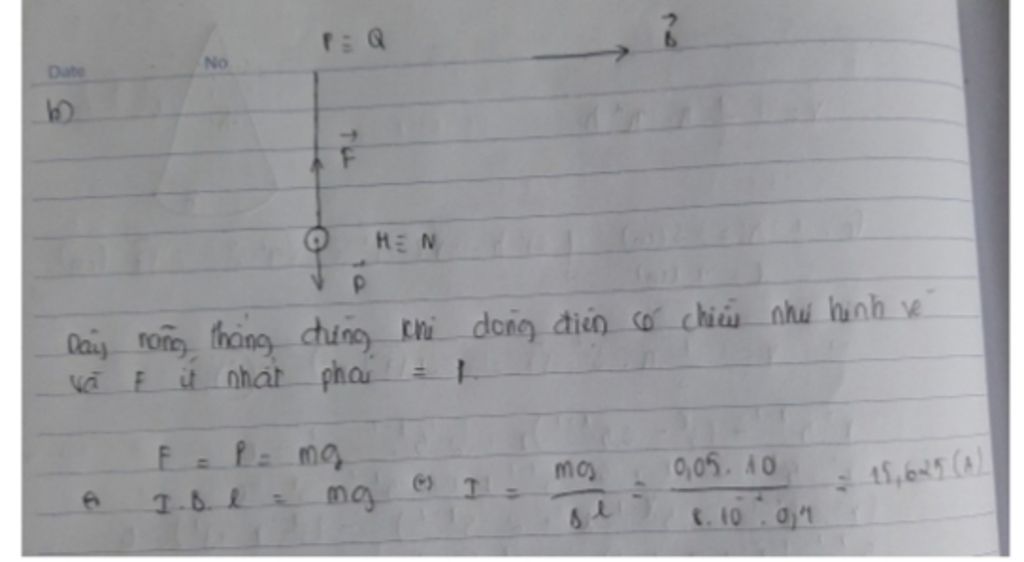 P ≡ Q
B⃗
Date
No
b)
F⃗
M ≡ N
P⃗
Dây nằm thẳng đứng khi dòng điện có chiều như hình vẽ
và F ít nhất phải = P
F = P = mg
⇔ I.B.l = mg ⇔ I = mg / Bl = 0,05.10 / 8.10⁻².0,4 = 15,625 (A)